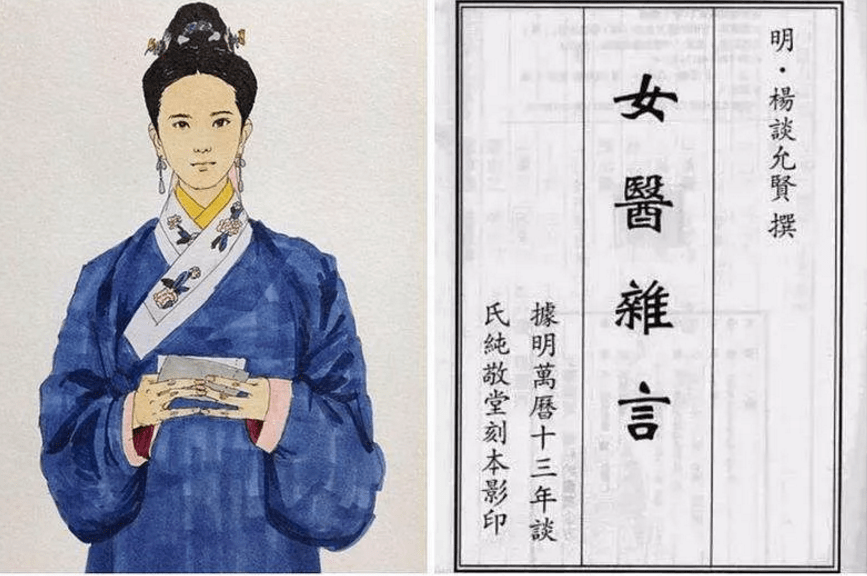 明·楊談允賢撰
女醫雜言
據明萬曆十三年談
氏純敬堂刻本影印